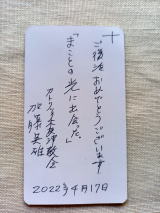 ご復活おめでとうございます
「まことの光に出会った。」
カトリック
加藤英雄
2022年4月17日